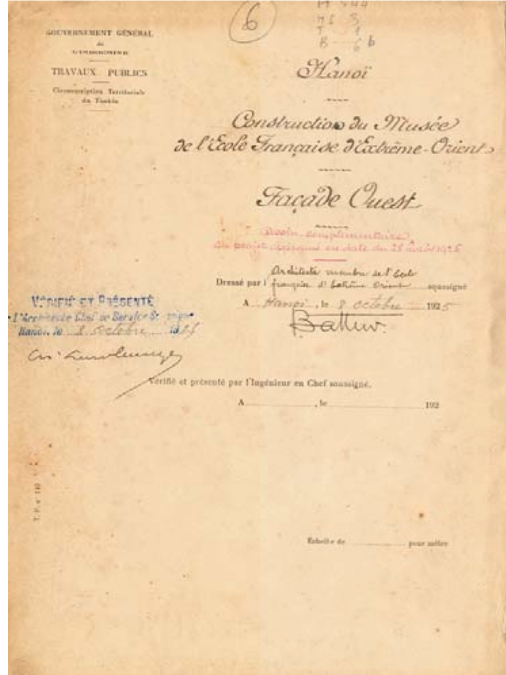 6
M
3
1
B 6 b
GOUVERNEMENT GÉNÉRAL
de
L'INDOCHINE
TRAVAUX PUBLICS
Circonscription Territoriale
du Tonkin
Hanoï
Construction du Musée
de l'Ecole Française d'Extrême-Orient
Façade Ouest
complémentaire
au projet en date du 28 1925
Dressé par l'Architecte membre de l'Ecole
française d'Extrême Orient soussigné
A Hanoi, le 8 octobre 1925
Batteur
VÉRIFIÉ ET PRÉSENTÉ
l'Architecte Chef de Service
Hanoi, le 8 octobre 1925
Vérifié et présenté par l'Ingénieur en Chef soussigné.
A , le 192
T. P. n°
Echelle de pour mètre